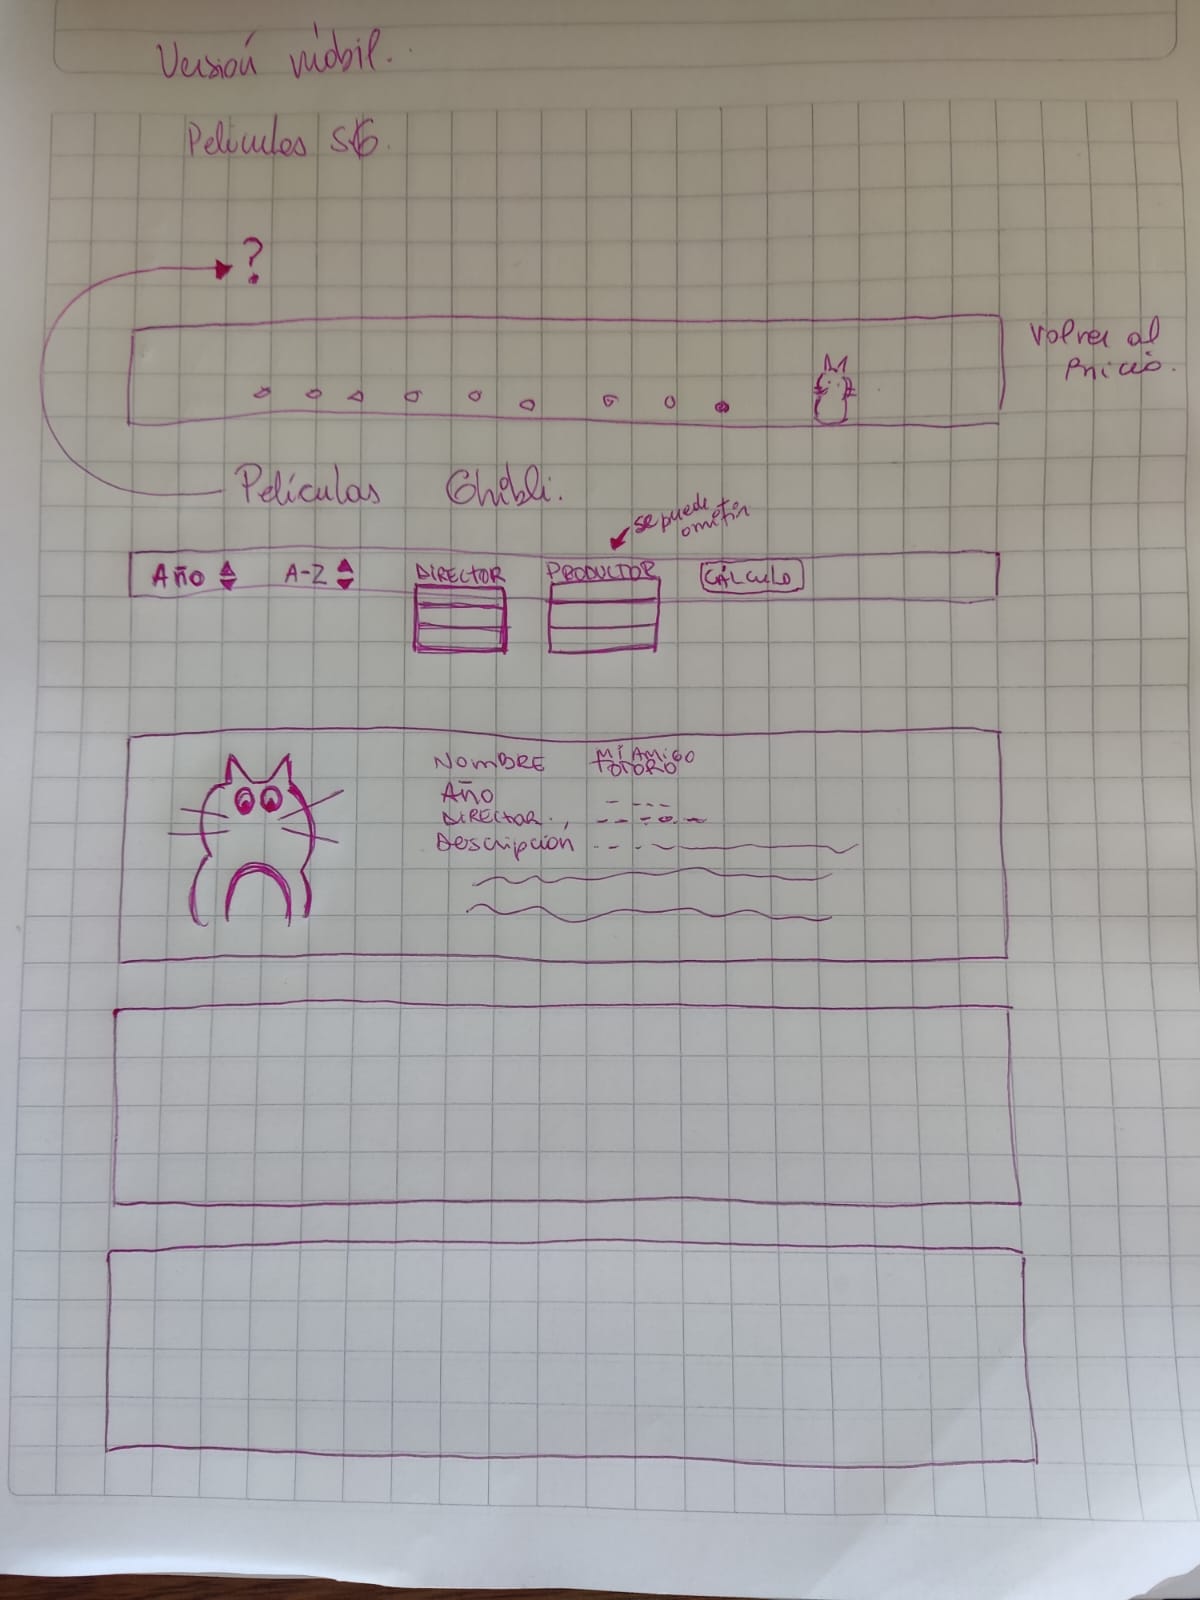 Versión móbil.
Películas SG.
?
Volver al
inicio.
Películas Ghibli.
se puede
omitir
Año A-Z DIRECTOR PRODUCTOR CÁLCULO
NOMBRE MI AMIGO
TOTORO
Año
DIRECTOR
Descripción